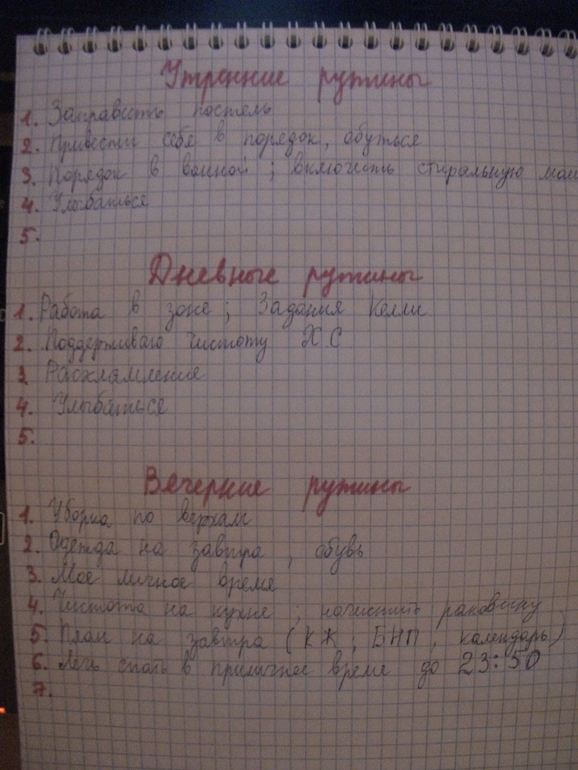 Утренние рутины
1. Заправить постель
2. Привести себя в порядок, обуться
3. Порядок в ванной; включить стиральную маш
4. Улыбаться
5.
Дневные рутины
1. Работа в зоне; Задания Келли
2. Поддерживаю чистоту ХС
3. Расхламление
4. Улыбаться
5.
Вечерние рутины
1. Уборка по верхам
2. Одежда на завтра, обувь
3. Мое личное время
4. Чистота на кухне; начистить раковину
5. План на завтра (КЖ; БНП, календарь)
6. Лечь спать в приличное время до 23:50
7.